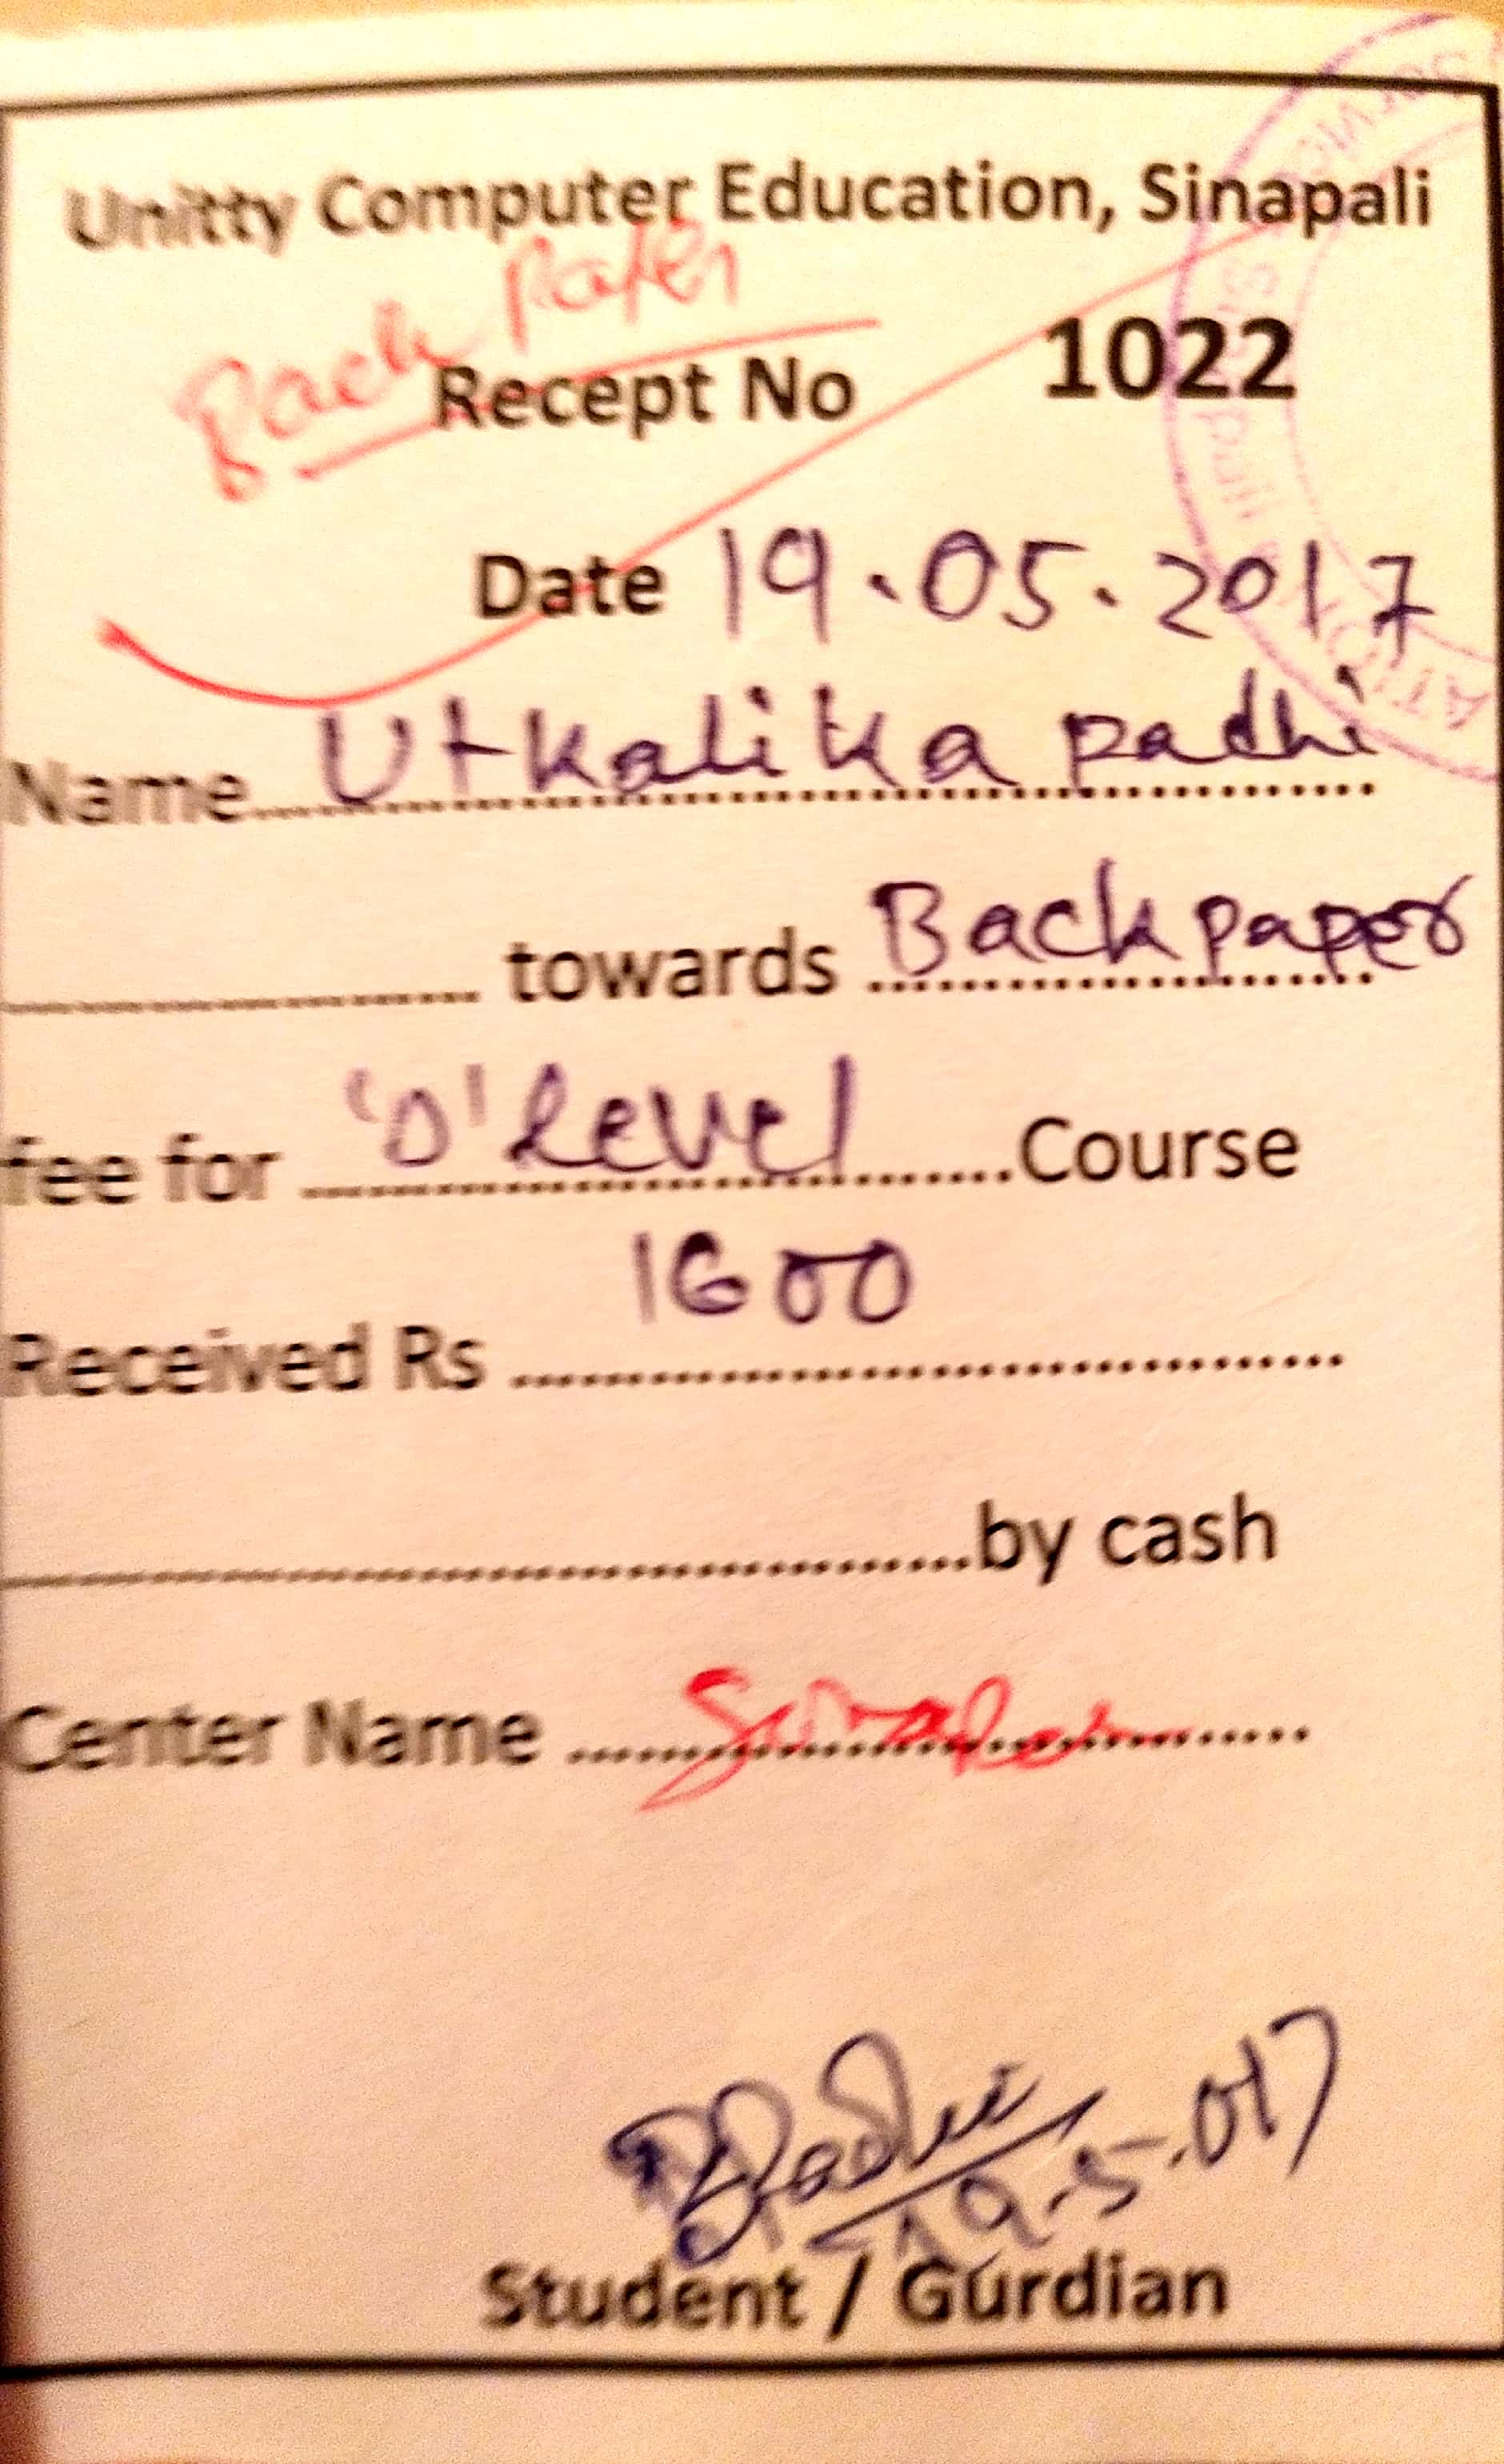 Unitty Computer Education, Sinapali
Back Paper
Recept No 1022
Date 19.05.2017
Name Utkalika padhi
towards Back paper
fee for 'O' Level Course
Received Rs 1600
by cash
Center Name
19.5.017
Student / Gurdian